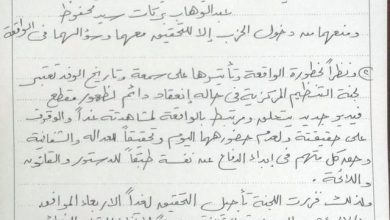 عبد الوهاب بركات سيد محفوظ
ومنعهما من دخول الحزب إلا للتحقيق معهما وسؤالهما فى الواقعة
ونظراً لخطورة الواقعة وتأثيرها على سمعة وتاريخ الوفد تعتبر
لجنة التنظيم المركزية فى حالة إنعقاد دائم لظهور مقطع
فيديو جديد يتعلق ومرتبط بالواقعة لمشاهدته غداً والوقوف
على حقيقته ولعدم حضورهما اليوم وتحقيقاً للعدالة والشفافية
وحق كل متهم فى إبداء الدفاع عن نفسه طبقاً للدستور والقانون
واللائحة.
ولذلك قررت اللجنة تأجيل التحقيق لغداً الأربعاء الموافق